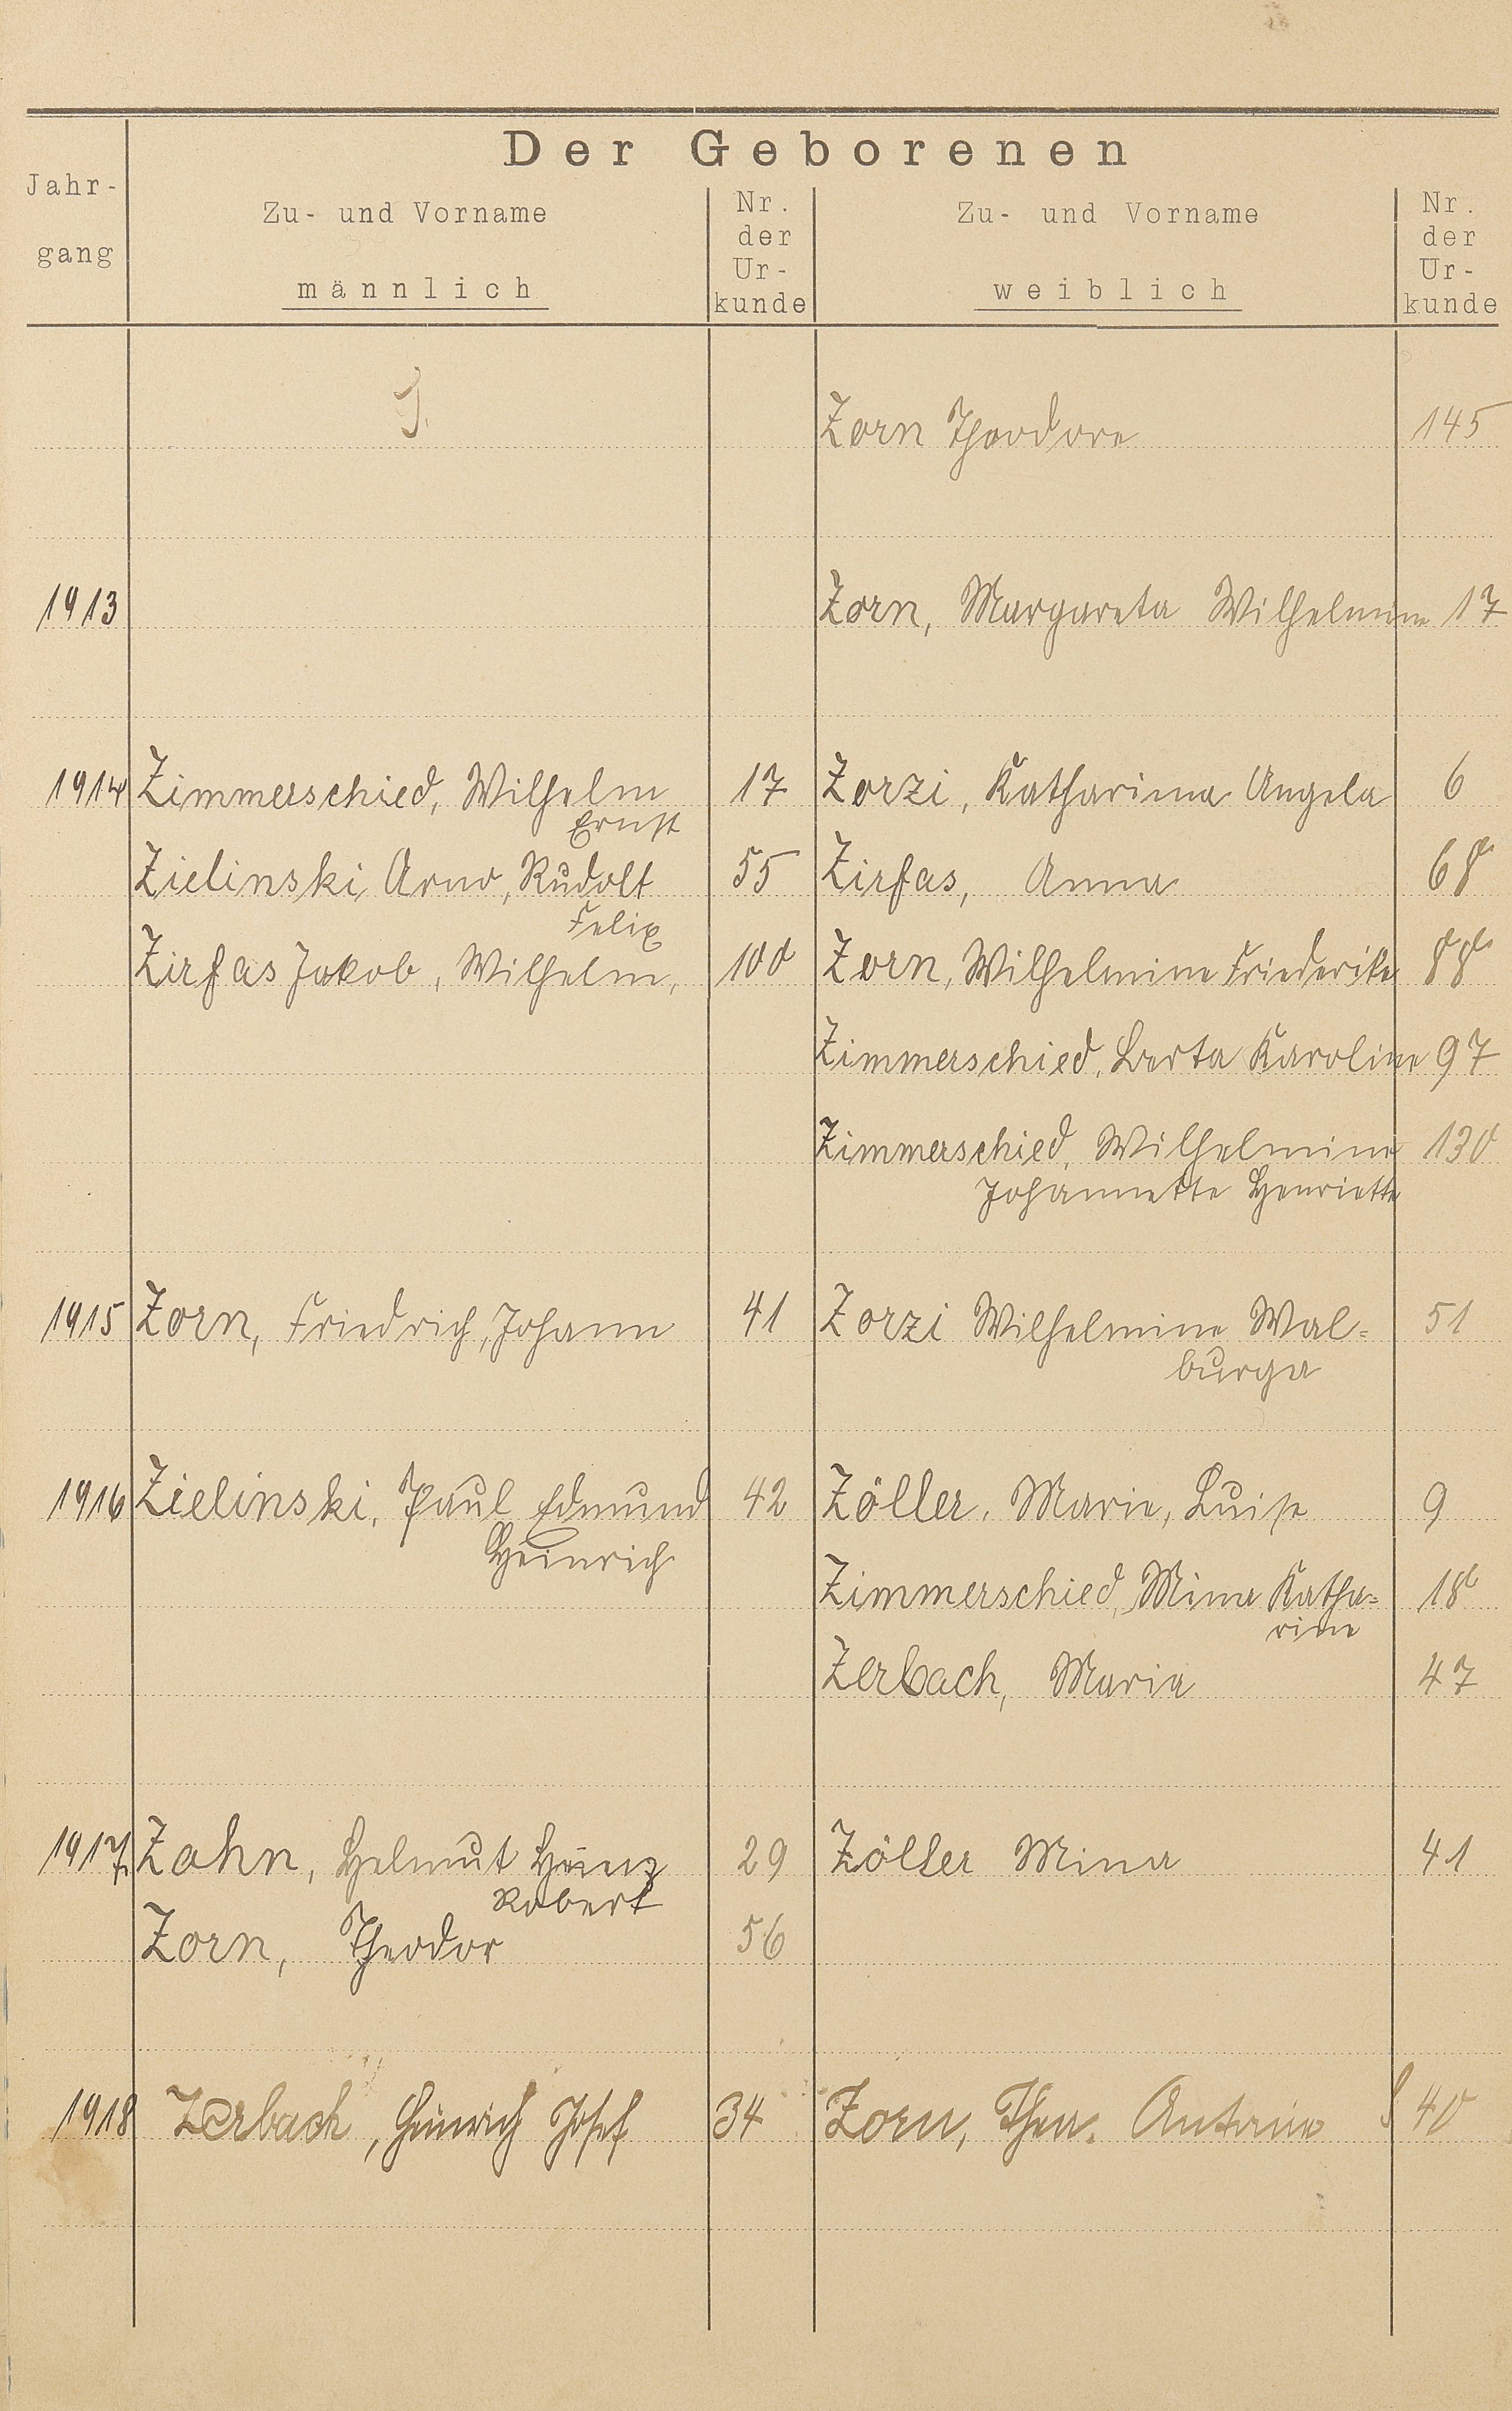 Der Geborenen
Jahr-
gang
Zu- und Vorname
männlich
Nr.
der
Ur-
kunde
Zu- und Vorname
weiblich
Nr.
der
Ur-
kunde
Zorn Theodore 145
1913 Zorn, Margareta Wilhelmine 17
1914 Zimmerschied, Wilhelm 17 Zorzi, Katharina Angela 6
Ernst
Zielinski Arno, Rudolf 55 Zirfas, Anna 68
Felix
Zirfas Jakob, Wilhelm, 100 Zorn, Wilhelmine Friederike 88
Zimmerschied, Berta Karoline 97
Zimmerschied, Wilhelmine 130
Johannette Henriette
1915 Zorn, Friedrich, Johann 41 Zorzi Wilhelmine Wal= 51
burga
1916 Zielinski, Paul Edmund 42 Zöller, Marie, Luise 9
Heinrich
Zimmerschied, Mina Katha= 18
rine
Zerbach, Maria 47
1917. Zahn, Helmut Heinz 29 Zöller Mina 41
Robert
Zorn, Theodor 56
1918 Zerbach, Heinrich Josef 34 Zorn, 40